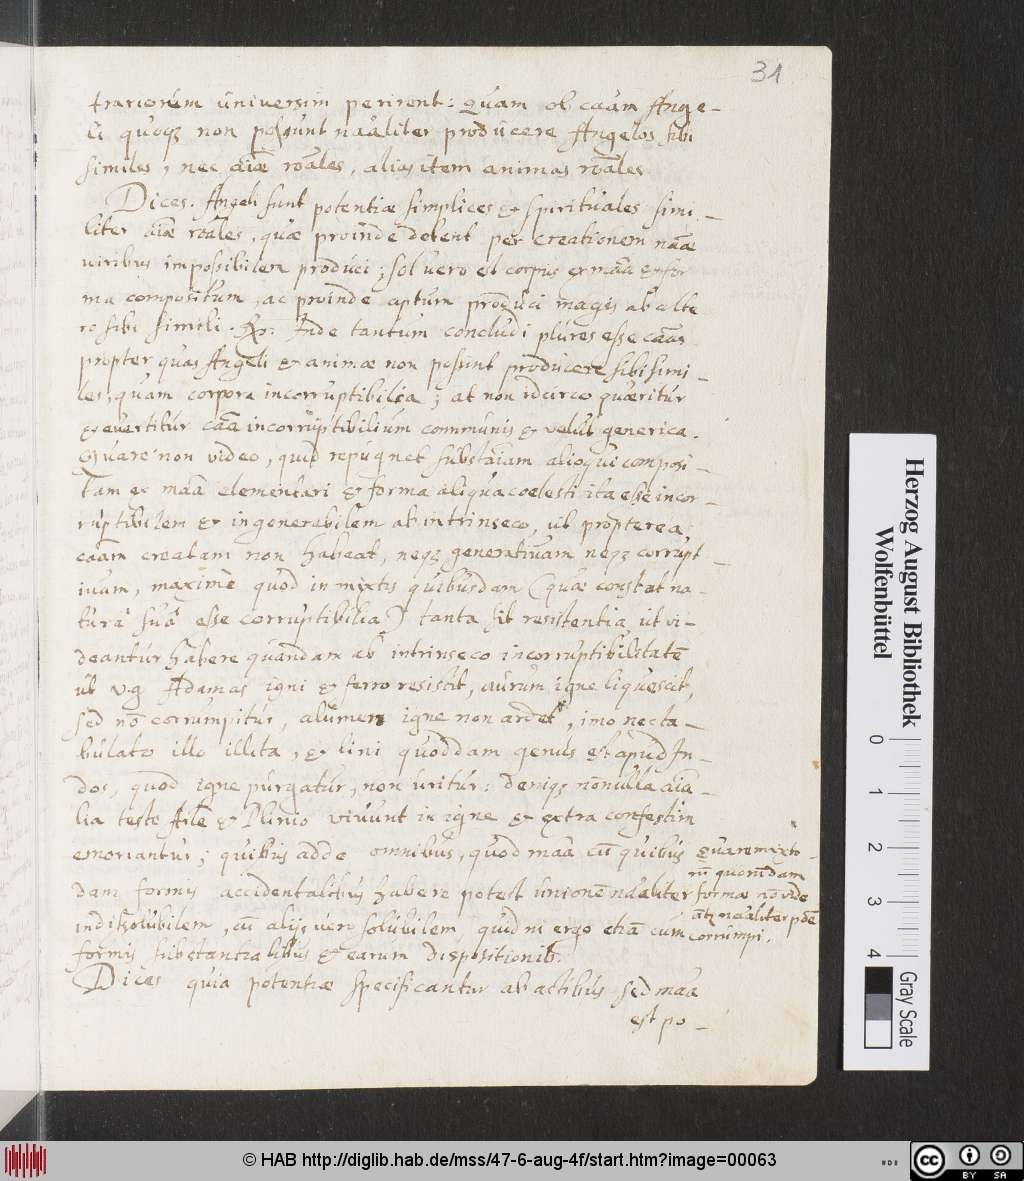 31
trariorúm úniversim perirent: Quam ob caãm Ange-
li quoqz non possunt naãliter prodúcere Angelos sibi
similes, nec aiãe roãles, alias item animas roãles.
Dices. Angeli sunt potentiæ simplices & spirituales simi-
liter aiãe roãles, quæ proinde debent per creationem naãe
viribus impossibilem prodúci; sol vero est corpus ex maã & for
ma compositúm, ac proinde aptúm prodúci magis ab alte
ro sibi simili. Rx: Inde tantúm conclúdi plúres esse caãs
propter quas Angeli & animæ non possúnt prodúcere sibi simi-
les, quam corpora incorruptibilia; at non idcirco quæritúr
& evertitúr caãa incorrúptibiliúm commúnis & velut generica.
Quare non video, quid repúgnet súbstãiam alioqui composi-
tam ex maã elementari & forma aliqua coelesti ita esse incor-
rúptibilem & ingenerabilem ab intrinseco, út propterea
caãm creatam non habeat, neqz generativam neqz corrupt-
ivam, maximè quod in mixtis quibúsdam (quæ constat na-
túrâ súâ esse corruptibilia) tanta sit resistentia út vi-
deantúr habere quandam ab intrinseco incorruptibilitatẽ
út v.g Adamas igni & ferro resistit, aúrúm igne liquescit,
sed nõ corrumpitúr, alúmen igne non ardet, imo nec ta-
búlato illo illita, & lini quoddam genus est apúd In-
dos, quod igne púrgatúr, non úritúr: deniqz nõnulla aiã-
lia teste Arle & Plinio vivúnt in igne & extra confestim
emoriantúr; quibús adde omnibús, quod maã cũ quibús
dam formis accidentalibús habere potest únionẽ naãliter
indissolúbilem, cũ alijs verò solúbilem, quid ni ergo etiã cum
formis súbstantialibús & earum dispositionib.
Quare mixto-
rũ quorũdam
formæ nõ vide
ãtr naãliter põe
corrúmpi.
Dices quia potentiæ specificantur ab actibús sed maã
est po-
Herzog August Bibliothek
Wolfenbüttel
0 1 2 3 4
Gray Scale
© HAB http://diglib.hab.de/mss/47-6-aug-4f/start.htm?image=00063
cc BY SA